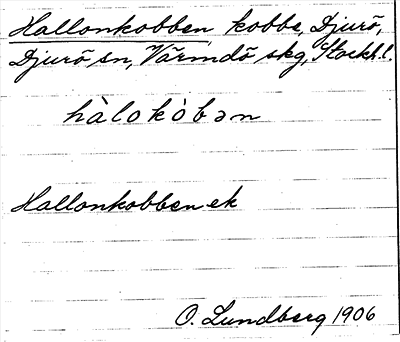 Hallonkobben kobbe, Djurö,
Djurö sn, Värmdö skg, Stockh.l.
hàlokòbən
Hallonkobben ek
O. Lundberg 1906